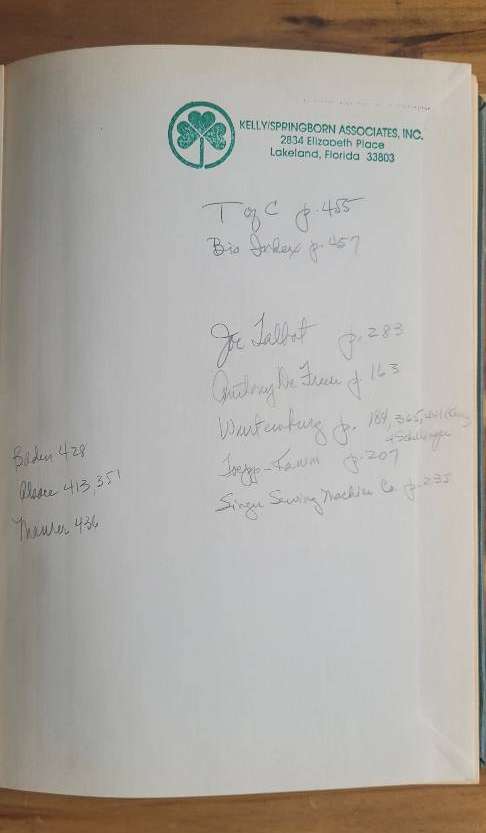 KELLY/SPRINGBORN ASSOCIATES, INC.
2834 Elizabeth Place
Lakeland, Florida 33803
T of C p. 455
Bio Index p. 457
Joe Talbot p. 283
Anthony De Frees p. 163
Wurtemburg p. 184, 365,
p. 207
Singer Sewing Machine Co p. 235
Baden 428
Alsace 413, 351
436